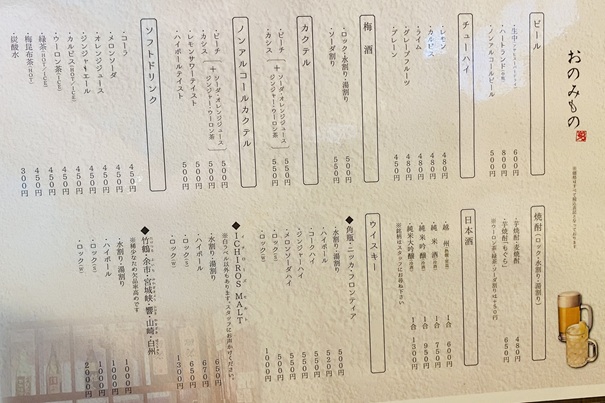 おのみもの
ビール
・生中 600円
・ハートランド 800円
・ノンアルコールビール 500円
チューハイ
・レモン 480円
・カルピス 480円
・ライム 480円
・グレープフルーツ 480円
・プレーン 450円
梅酒
・ロック・水割り・湯割り 500円
・ソーダ割り 550円
カクテル
・ピーチ
・カシス
+
ソーダ・オレンジジュース
ジンジャー・ウーロン茶
550円
ノンアルコールカクテル
・ピーチ
・カシス
+
ソーダ・オレンジジュース
ジンジャー・ウーロン茶
500円
・レモンサワーテイスト 500円
・ハイボールテイスト 500円
ソフトドリンク
・コーラ 450円
・メロンソーダ 450円
・オレンジジュース 450円
・ジンジャエール 450円
・カルピス 450円
・ウーロン茶 450円
・緑茶 450円
・梅昆布茶(HOT) 450円
・炭酸水 300円
焼酎(ロック・水割り・湯割り)
・芋焼酎・麦焼酎 480円
・芋焼酎(もぐら) 650円
※ウーロン茶・緑茶・ソーダ割りは+50円
日本酒
・越州 1合 600円
・純米酒 1合 750円
・純米吟醸 1合 950円
・純米大吟醸 1合 1300円
※銘柄はスタッフにお尋ね下さい
ウイスキー
◆角瓶・ニッカ・フロンティア
・水割り・湯割り 500円
・ハイボール 520円
・コークハイ 550円
・ジンジャーハイ 550円
・メロンソーダハイ 550円
・ロック 1000円
◆ICHIROS MALT
※白ラベル以外もあります。スタッフにお声かけください。
・水割り・湯割り 650円
・ハイボール 670円
・ロック 650円
・ロック 1300円
◆竹鶴・余市・宮城峡・響・山崎・白州
※稀少なため欠品率高めです
・水割り・湯割り 1000円
・ハイボール 1000円
・ロック 1000円
・ロック 2000円